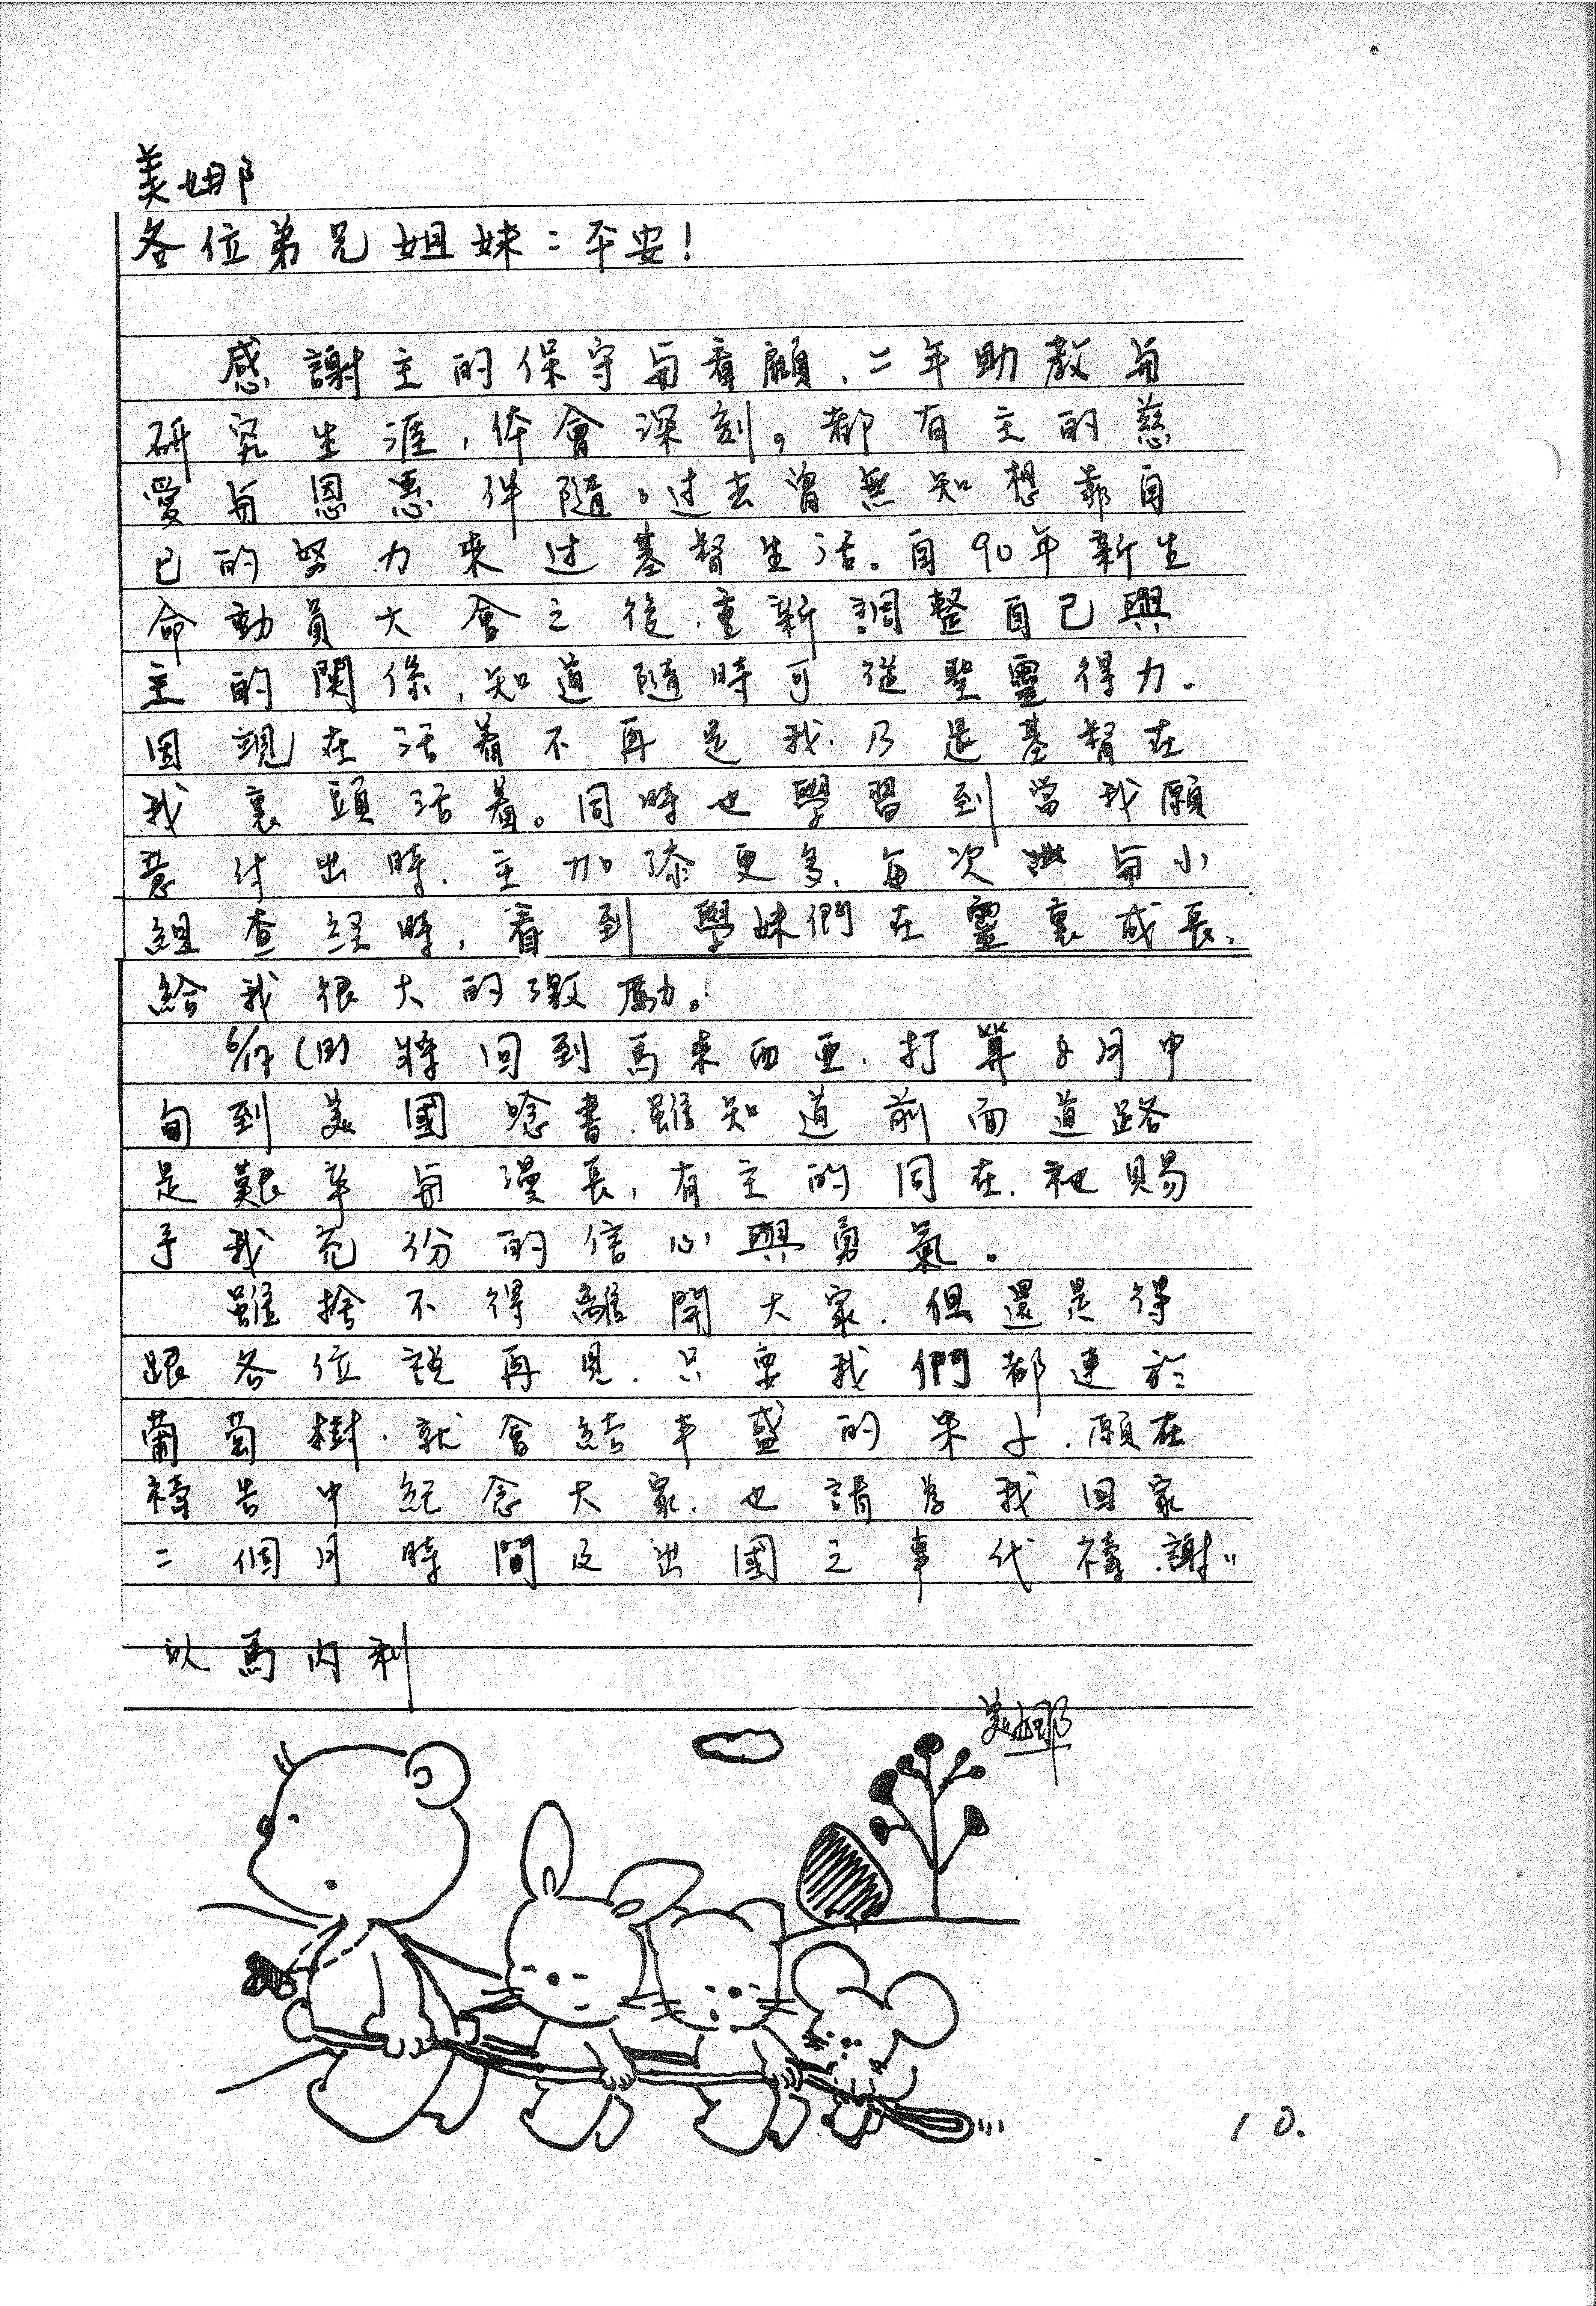 美娜
各位弟兄姐妹：平安！
感謝主的保守与看顧、二年助教与
研究生涯，体會深刻。都有主的慈
愛与恩惠伴隨。过去曾無知想靠自
己的努力來过基督生活。自90年新生
命動員大會之後．重新調整自己與
主的関係，知道隨時可從聖靈得力。
因現在活着不再是我．乃是基督在
我裏頭活着。同時也學習到當我願
意付出時．主加添更多．每次与小
組查経時，看到學妹們在靈裏成長、
給我很大的激勵。
(日)將回到馬來西亜．打算8月中
旬到美國唸書．雖知道前面道路
是艱辛与漫長，有主的同在．祂賜
予我充份的信心與勇氣。
雖捨不得離開大家．但還是得
跟各位說再見．只要我們都連於
葡萄樹．就會結丰盛的果子．願在
禱告中紀念大家．也請为我回家
二個月時間及出國之事代禱．謝〃
以馬內利
美娜
10.